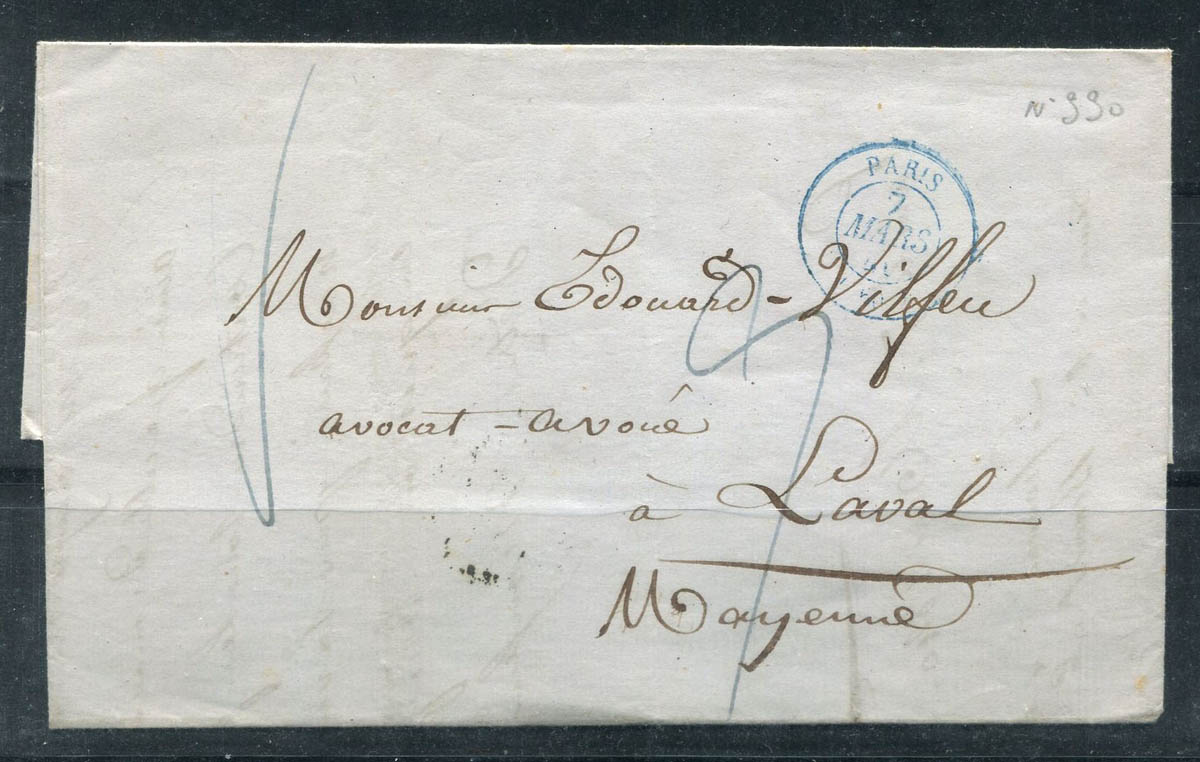 N° 990
PARIS
7
MARS
Monsieur Edouard-Vilfeu
avocat-avoué
à Laval
Mayenne